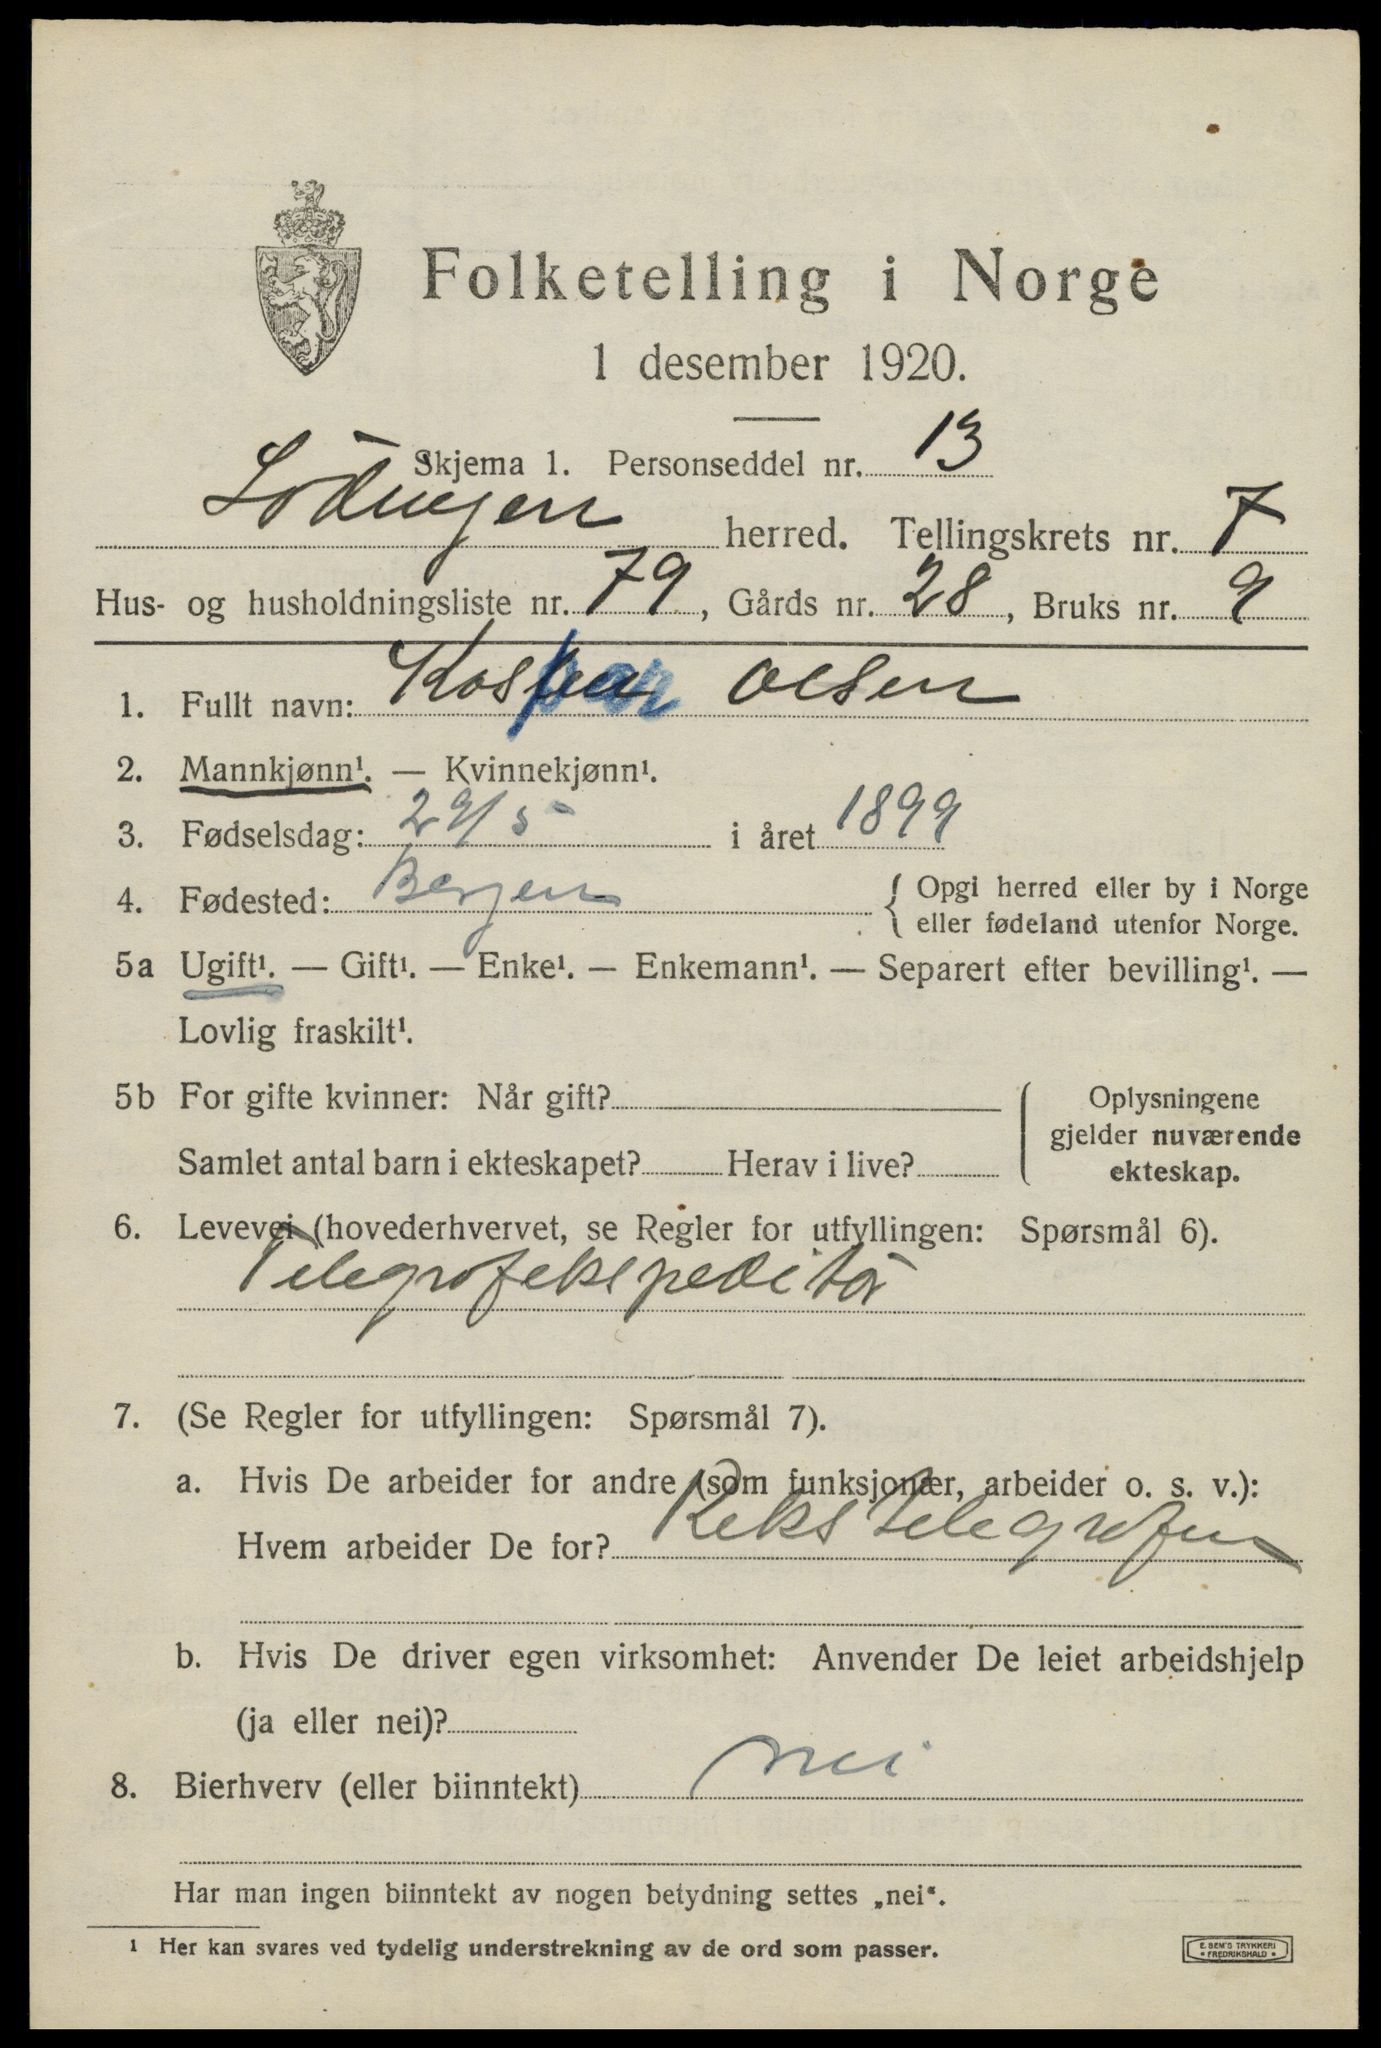 Folketelling i Norge
1 desember 1920.
Skjema 1. Personseddel nr. 13
Lödingen herred. Tellingskrets nr. 7
Hus- og husholdningsliste nr. 79, Gårds nr. 28, Bruks nr. 9
1. Fullt navn: Kaspar Olsen
2. Mannkjønn¹. — Kvinnekjønn¹.
3. Fødselsdag: 29/5 i året 1899
4. Fødested: Bergen { Opgi herred eller by i Norge
eller fødeland utenfor Norge.
5a Ugift¹. — Gift¹. — Enke¹. — Enkemann¹. — Separert efter bevilling¹. —
Lovlig fraskilt¹.
5b For gifte kvinner: Når gift? Oplysningene
gjelder nuværende
Samlet antal barn i ekteskapet? Herav i live? ekteskap.
6. Levevei (hovederhvervet, se Regler for utfyllingen: Spørsmål 6).
Telegrafekspeditör
7. (Se Regler for utfyllingen: Spørsmål 7).
a. Hvis De arbeider for andre (som funksjonær, arbeider o. s. v.):
Hvem arbeider De for? Rikstelegrafen
b. Hvis De driver egen virksomhet: Anvender De leiet arbeidshjelp
(ja eller nei)?
8. Bierhverv (eller biinntekt) nei
Har man ingen biinntekt av nogen betydning settes „nei“.
¹ Her kan svares ved tydelig understrekning av de ord som passer.
E. SEM'S TRYKKERI
FREDRIKSHALD